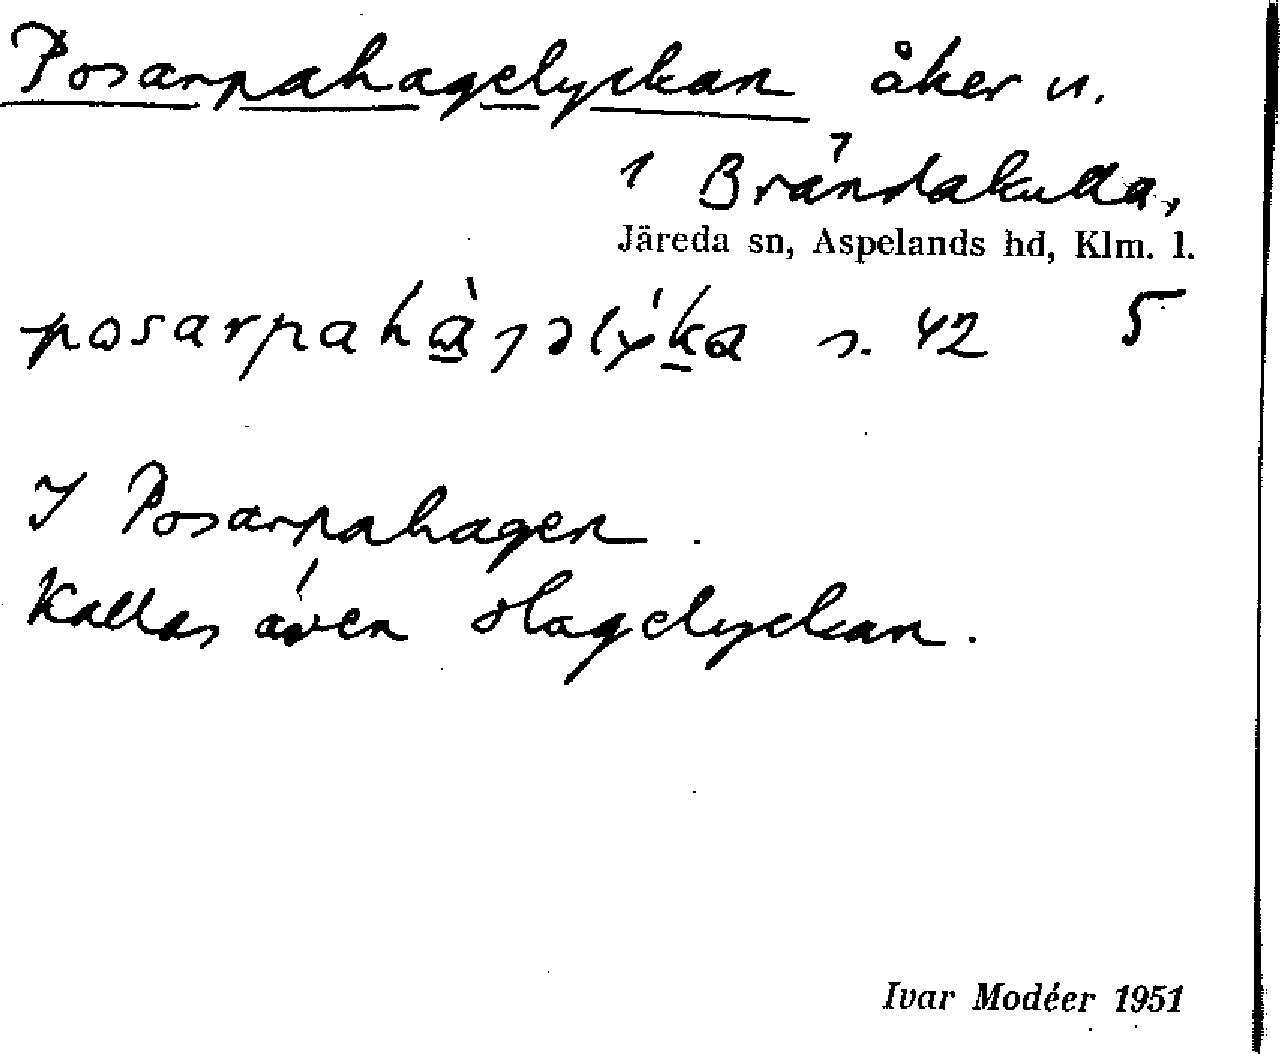 Posarpahagelyckan åker u.
1 Brändakulla,
Järeda sn, Aspelands hd, Klm. l.
s. 42 5
I Posarpahagen.
Kallas även Hagelyckan.
Ivar Modéer 1951